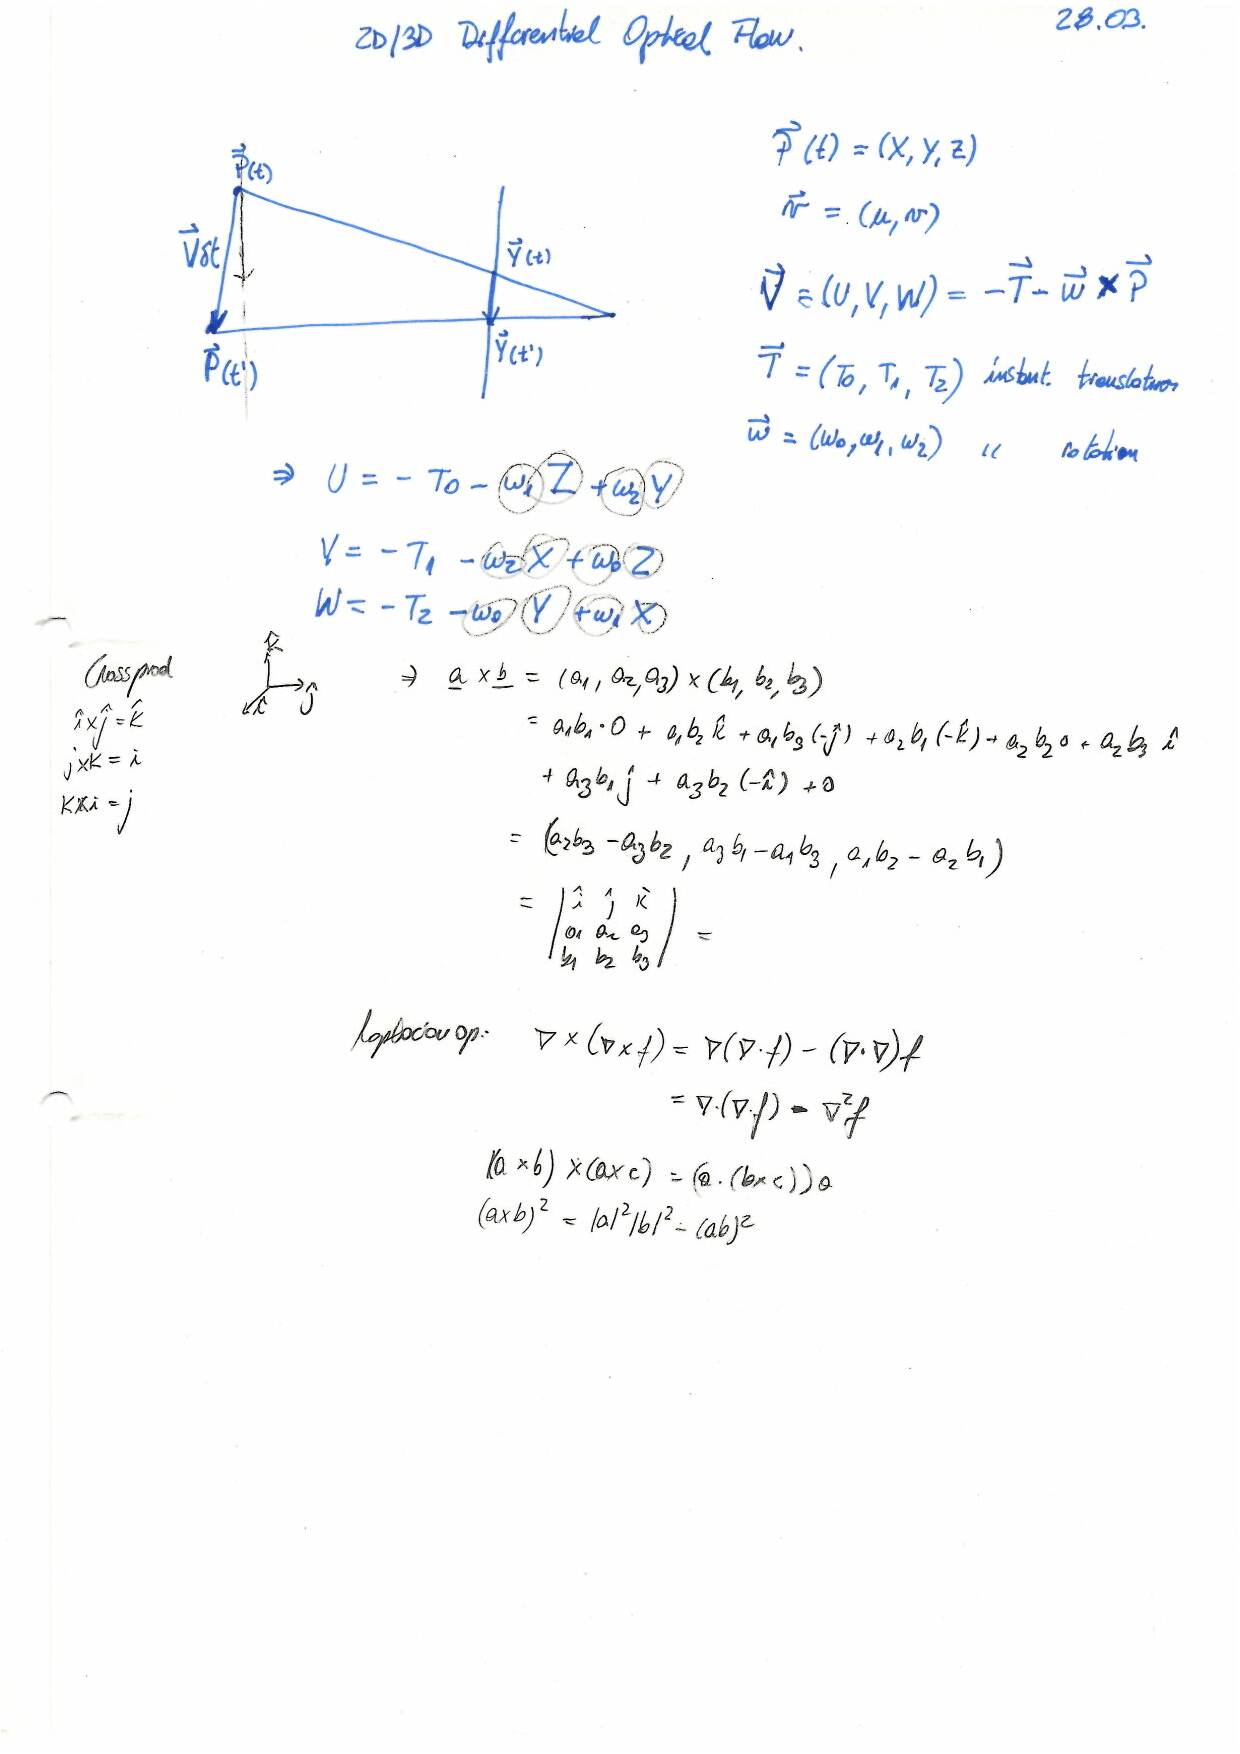 2D/3D Differential Optical Flow.
28.03.
P⃗(t)
V⃗δt
P⃗(t')
Y⃗(t)
Y⃗(t')
P⃗(t) = (X, Y, Z)
v⃗ = (u, v)
V⃗ = (U, V, W) = -T⃗ - w⃗ × P⃗
T⃗ = (T0, T1, T2) instant. translation
w⃗ = (w0, w1, w2) " rotation
⇒ U = - T0 - w1 Z + w2 Y
V = - T1 - w2 X + w0 Z
W = - T2 - w0 Y + w1 X
Crossprod
k̂
î
ĵ
î × ĵ = k̂
j × k = i
k × i = j
⇒ a × b = (a1, a2, a3) × (b1, b2, b3)
= a1b1·0 + a1b2 k̂ + a1b3 (-ĵ) + a2b1 (-k̂) + a2b2 0 + a2b3 î
+ a3b1 j + a3b2 (-î) + 0
= (a2b3 - a3b2, a3b1 - a1b3, a1b2 - a2b1)
= | î ĵ k̂ |
| a1 a2 a3 | =
| b1 b2 b3 |
Laplacian op: ∇ × (∇ × f) = ∇(∇·f) - (∇·∇)f
= ∇·(∇·f) - ∇²f
(a × b) × (a × c) = (a · (b × c)) a
(a×b)² = |a|²|b|² - (ab)²